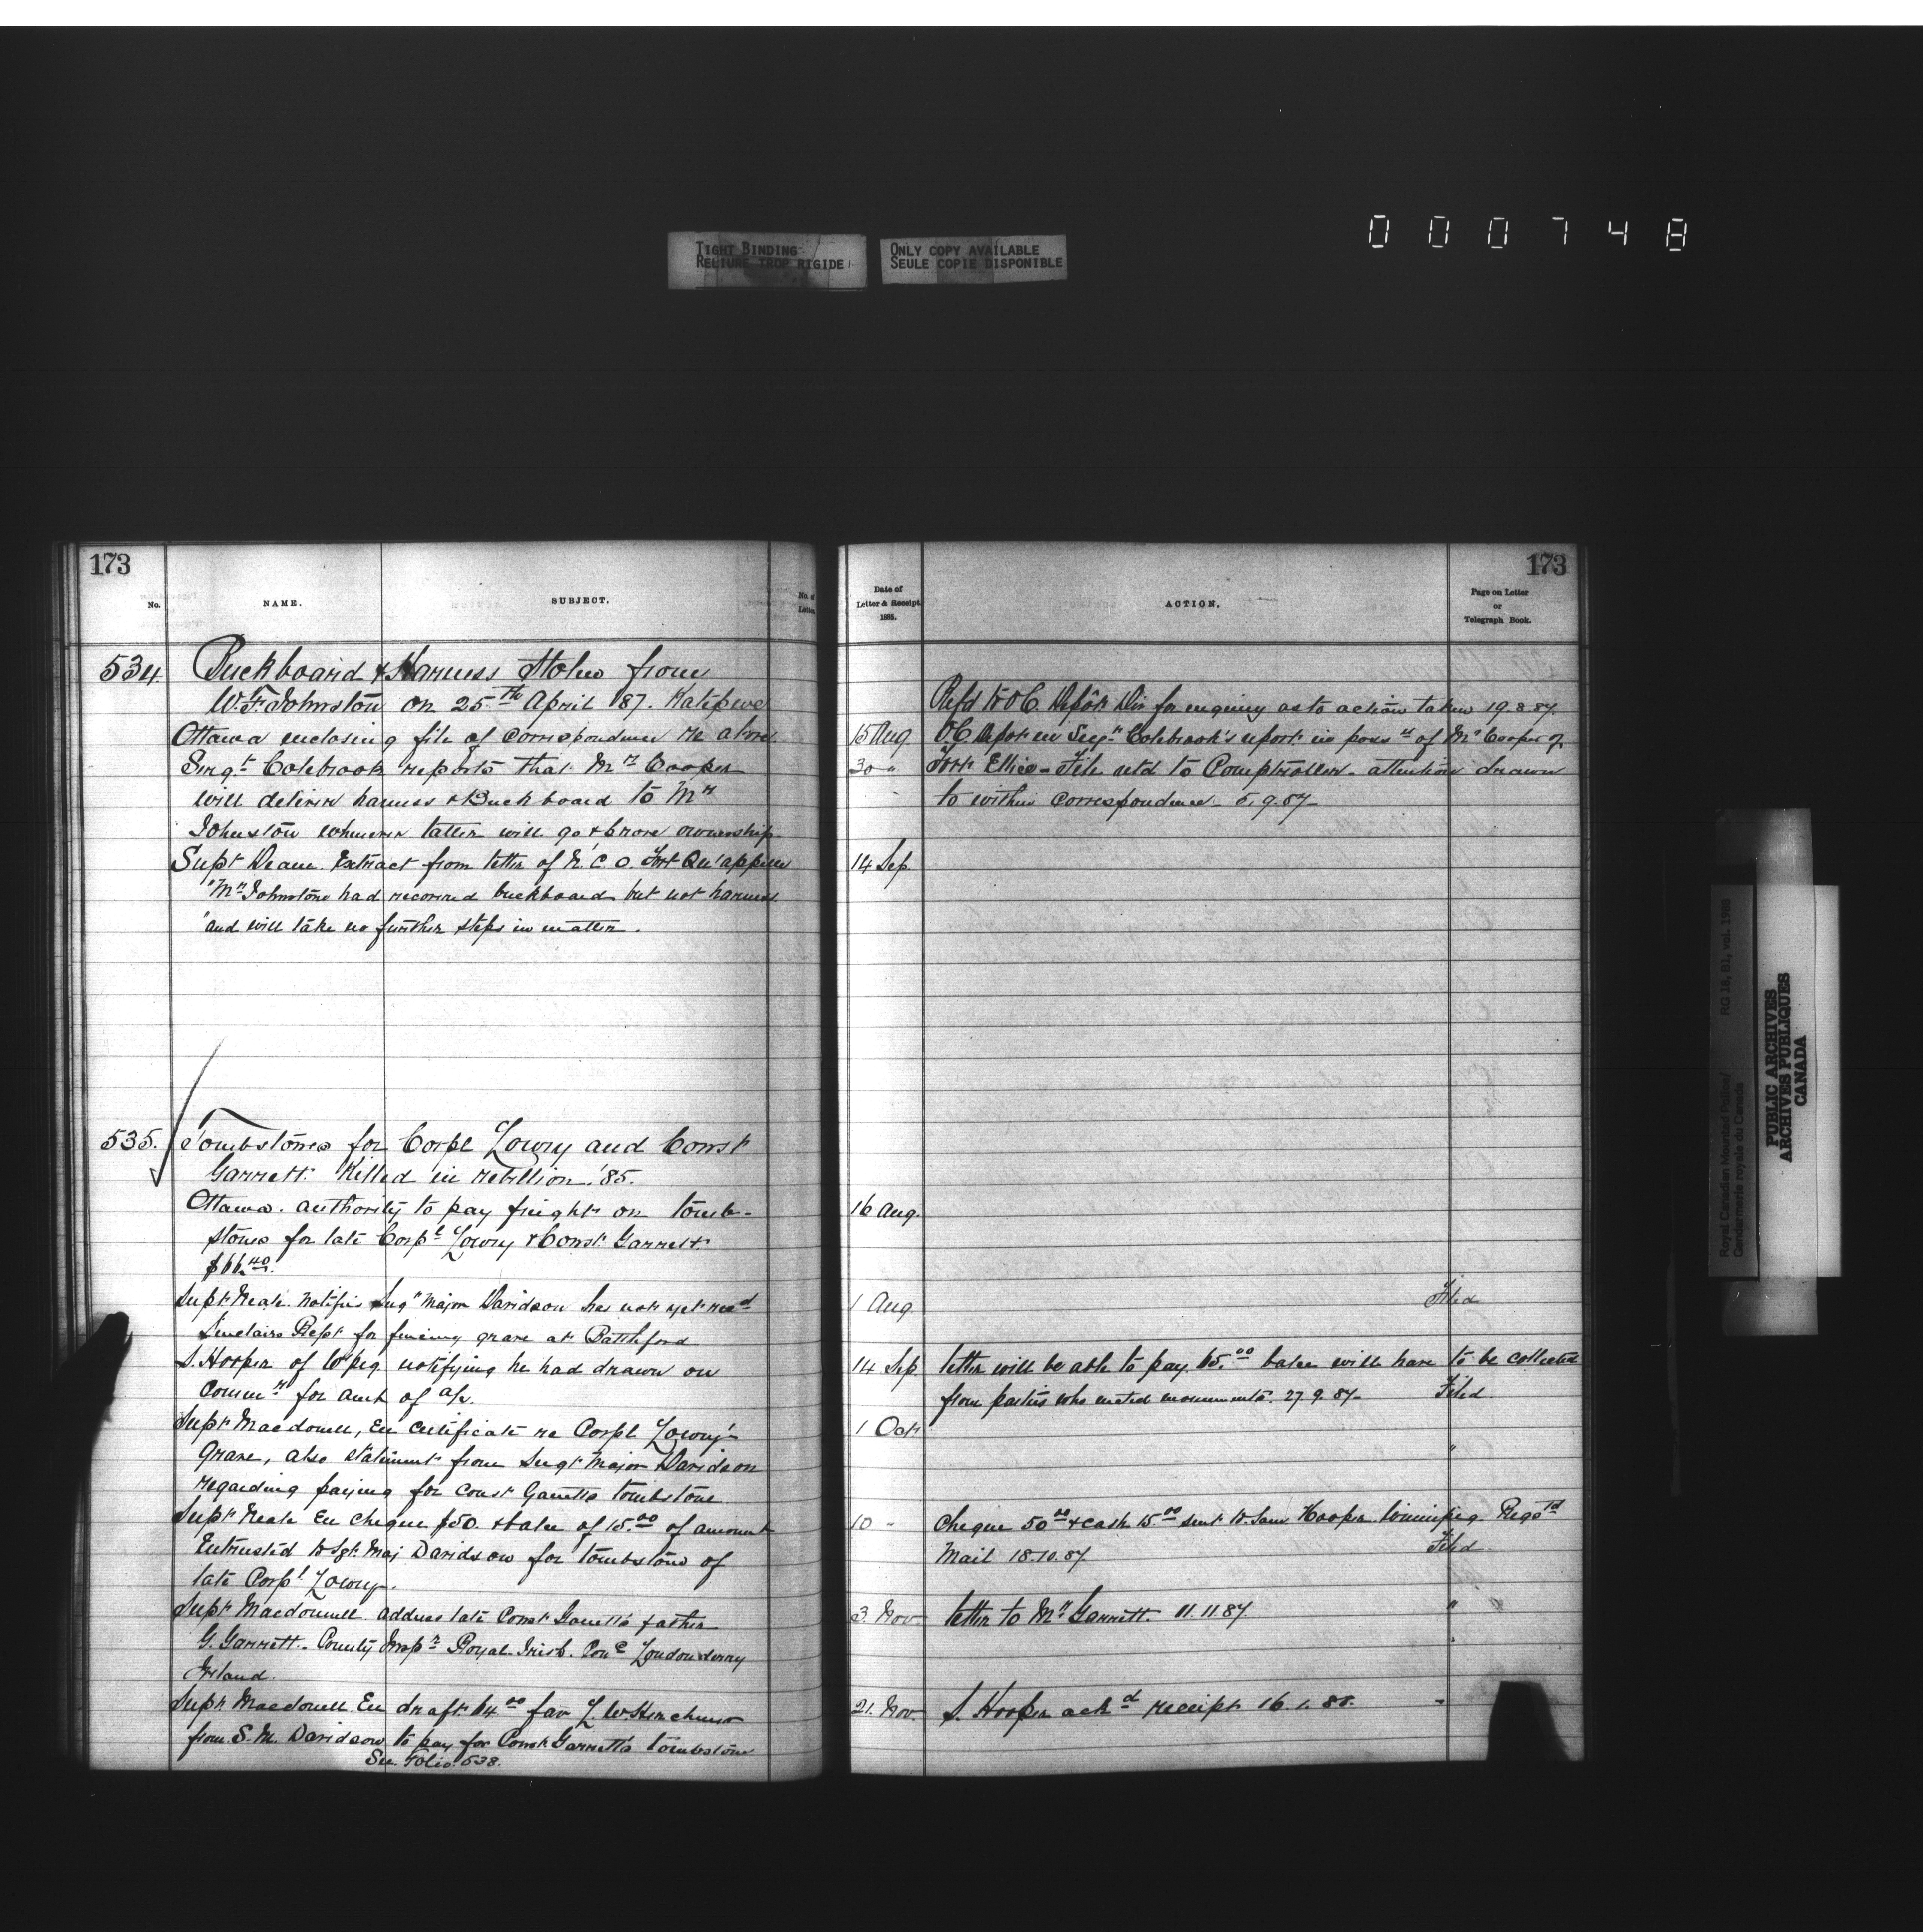 TIGHT BINDING
RELIURE TROP RIGIDE
ONLY COPY AVAILABLE
SEULE COPIE DISPONIBLE
000748
173
No.
NAME.
SUBJECT.
No. of Letter.
534. Buckboard & Harness Stolen from
W. F. Johnston on 25th April '87. Katepwe
Ottawa enclosing file of correspondence re above
Sergt Colebrook reports that Mr Cooper
will deliver harness & Buckboard to Mr
Johnston whenever latter will go & prove ownership
Supt Deane. Extract from letter of N.C.O. Fort Qu'appelle
"Mr Johnstone had recovered buckboard but not harness
"and will take no further steps in matter.
535. Tombstones for Corpl Lowry and Const
Garrett. Killed in rebellion. '85.
Ottawa. authority to pay freight on tomb-
stones for late Corpl Lowry & Const Garrett.
$66.40.
Supt Neale. notifies Sergt Major Davidson has not yet recd
Sinclairs Rept for fencing grave at Battleford
S. Hooper of W'peg notifying he had drawn on
Commr for amt of a/c.
Supt Macdonell, En certificate re Corpl Lowry's
grave, also statement from Sergt Major Davidson
regarding paying for const Garretts tombstone
Supt Neale En cheque $50. & balce of 15.00 of amount
Entrusted to Sgt. Maj Davidson for tombstone of
late Corpl Lowry.
Supt Macdonell. address late Const Garrett's father
G. Garrett. County Royal Irish. Londonderry
Ireland.
Supt. Macdonell En draft 64.00 fav L. W.
from S. M. Davidson to pay for Const Garrett's tombstone
See Folio. 538.
173
Date of Letter & Receipt. 1885.
ACTION.
Page on Letter or Telegraph Book.
Refd to O.C. Depôt Div for enquiry as to action taken 19.8.87.
15 Aug O.C. Depot en Sergt Colebrook's report in of Mr Cooper of
30 " Fort Ellice - File retd to Comptroller - attention drawn
to within correspondence - 5.9.87 -
14 Sep.
16 Aug.
1 Aug. Filed
14 Sep letter will be able to pay 65.00 balce will have to be collected
from parties who erected monuments. 27.9.87 - Filed
1 Oct "
10 " Cheque 50.00 & cash 15.00 sent to Sam Hooper Winnipeg Regstd
Mail 18.10.87 Filed
3. Nov letter to Mr Garrett. 11.11.87. "
21. Nov. S. Hooper ackd receipt 16.1.88. "
Royal Canadian Mounted Police/
Gendarmerie royale du Canada
RG 18, B1, vol. 1986
PUBLIC ARCHIVES
ARCHIVES PUBLIQUES
CANADA